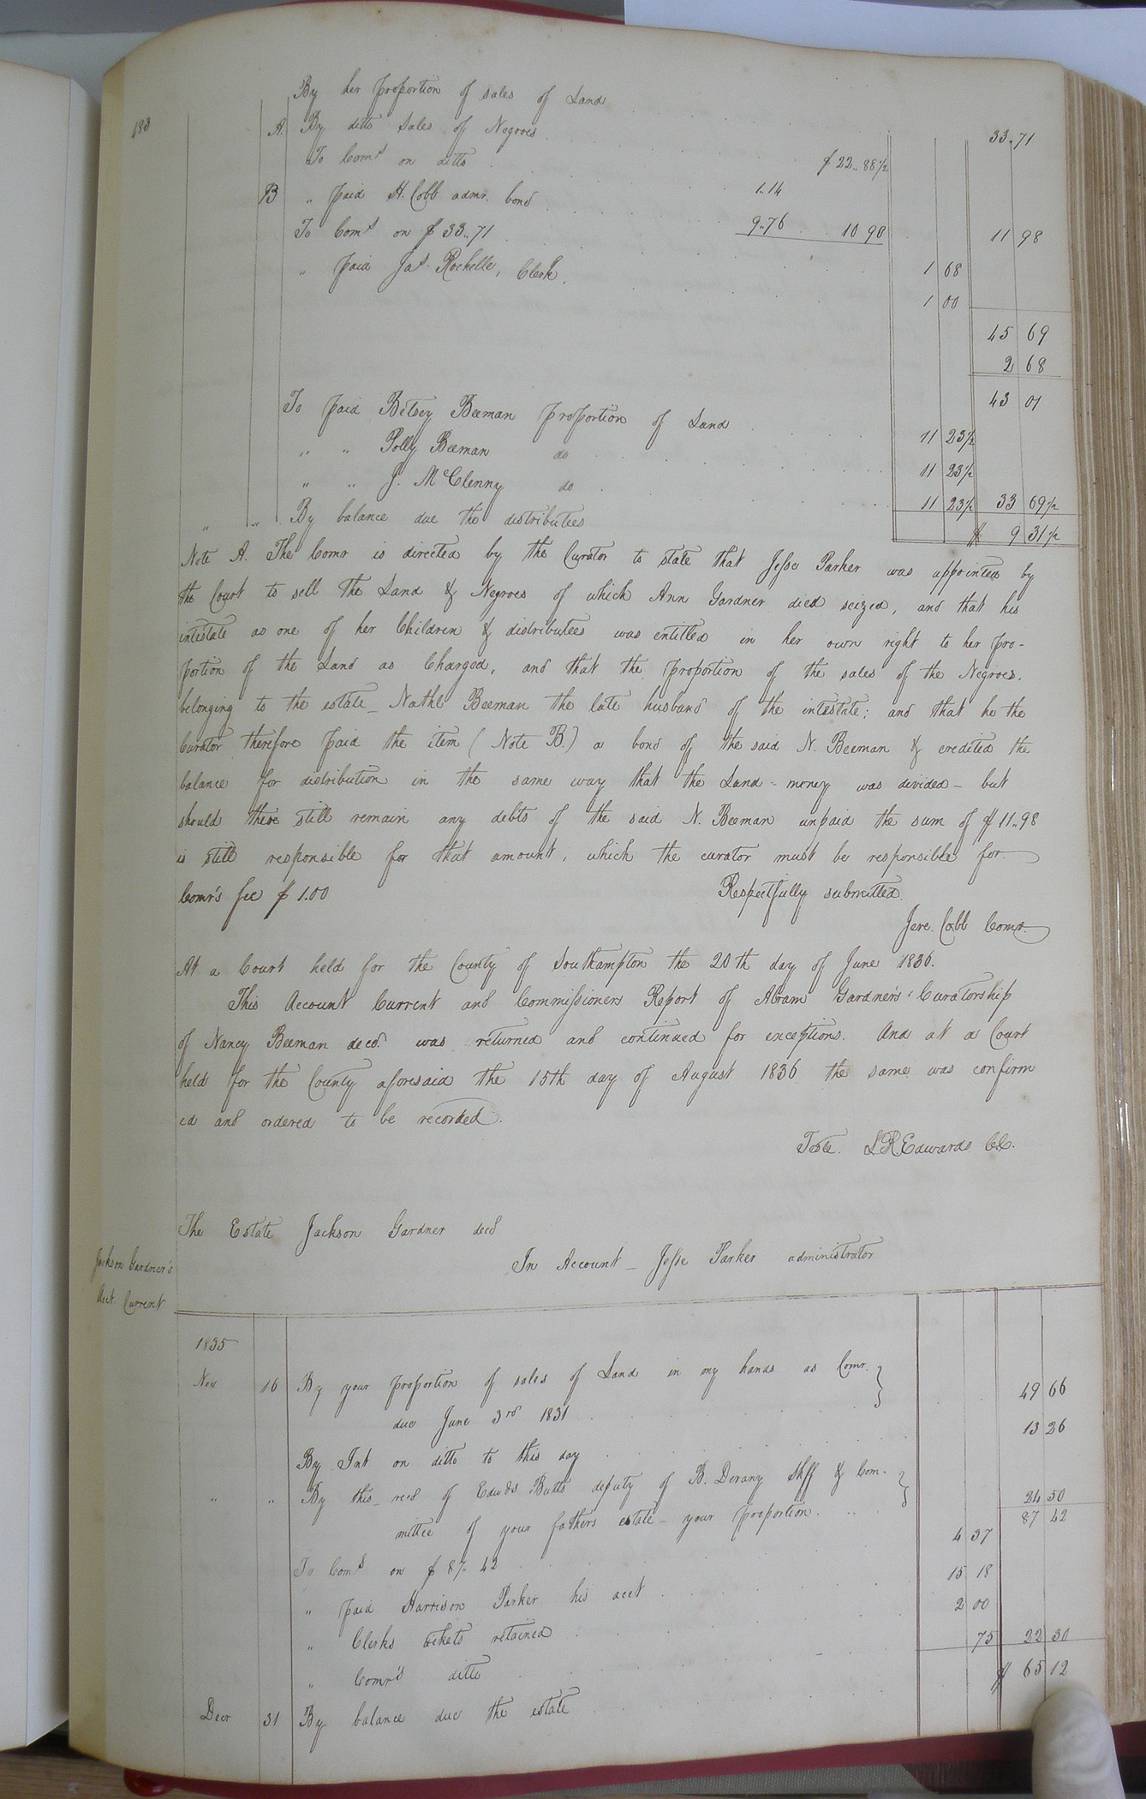 183
By her proportion of sales of Land 33.71
A. By ditto Sales of Negroes $22..88½
To Comˢ on ditto 1.14
B " paid H. Cobb admr. bond 9.76 10 90 11 98
To Comˢ on $33..71 1 68
" paid Jaˢ Rochelle, Clerk. 1 00
45 69
2 68
43 01
To paid Betsey Beeman proportion of Land 11 23½
" " Polly Beeman do 11 23½
" " J. McClenny do 11 23½ 33 69½
" " By balance due the distributees $ 9 31½
Note A. The Comr is directed by the Curator to state that Jesse Parker was appointed by
the Court to sell the Land & Negroes of which Ann Gardner died seized, and that his
intestate as one of her Children & distributees was entitled in her own right to her pro-
portion of the Land as Charged, and that the proportion of the sales of the Negroes.
belonging to the estate_ Nathl Beeman the late husband of the intestate; and that he the
Curator therefore paid the item (Note B.) a bond of the said N. Beeman & credited the
balance for distribution in the same way that the Land-money was divided- but
should there still remain any debts of the said N. Beeman unpaid the sum of $11..98
is still responsible for that amount, which the curator must be responsible for
Comr's fee $1.00 Respectfully submitted.
Jere. Cobb Comr.
At a Court held for the County of Southampton the 20th day of June 1836.
This Account Current and Commissioners Report of Abram Gardner's Curatorship
of Nancy Beeman decd. was returned and continued for exceptions. And at a Court
held for the County aforesaid the 15th day of August 1836 the same was confirm
ed and ordered to be recorded.
Teste. L.R. Edwards C.C.
The Estate Jackson Gardner decd
In Account _ Jesse Parker administrator
Jackson Gardner's
Acct Current
1835
Nov 16 By your proportion of sales of Land in my hands as Comr.
due June 3rd 1831 49 66
By Int on ditto to this day 13 26
" " By this_ recd of Edwds Butts deputy of B. Devany Shff & Com-
mittee of your fathers estate_ your proportion. 24 50
87 42
To Comˢ on $87.42 4 37
" paid Harrison Parker his acct 15 18
" Clerks tickets retained 2 00
" Comr's ditto 75 22 30
Decr 31 By balance due the estate $ 65 12